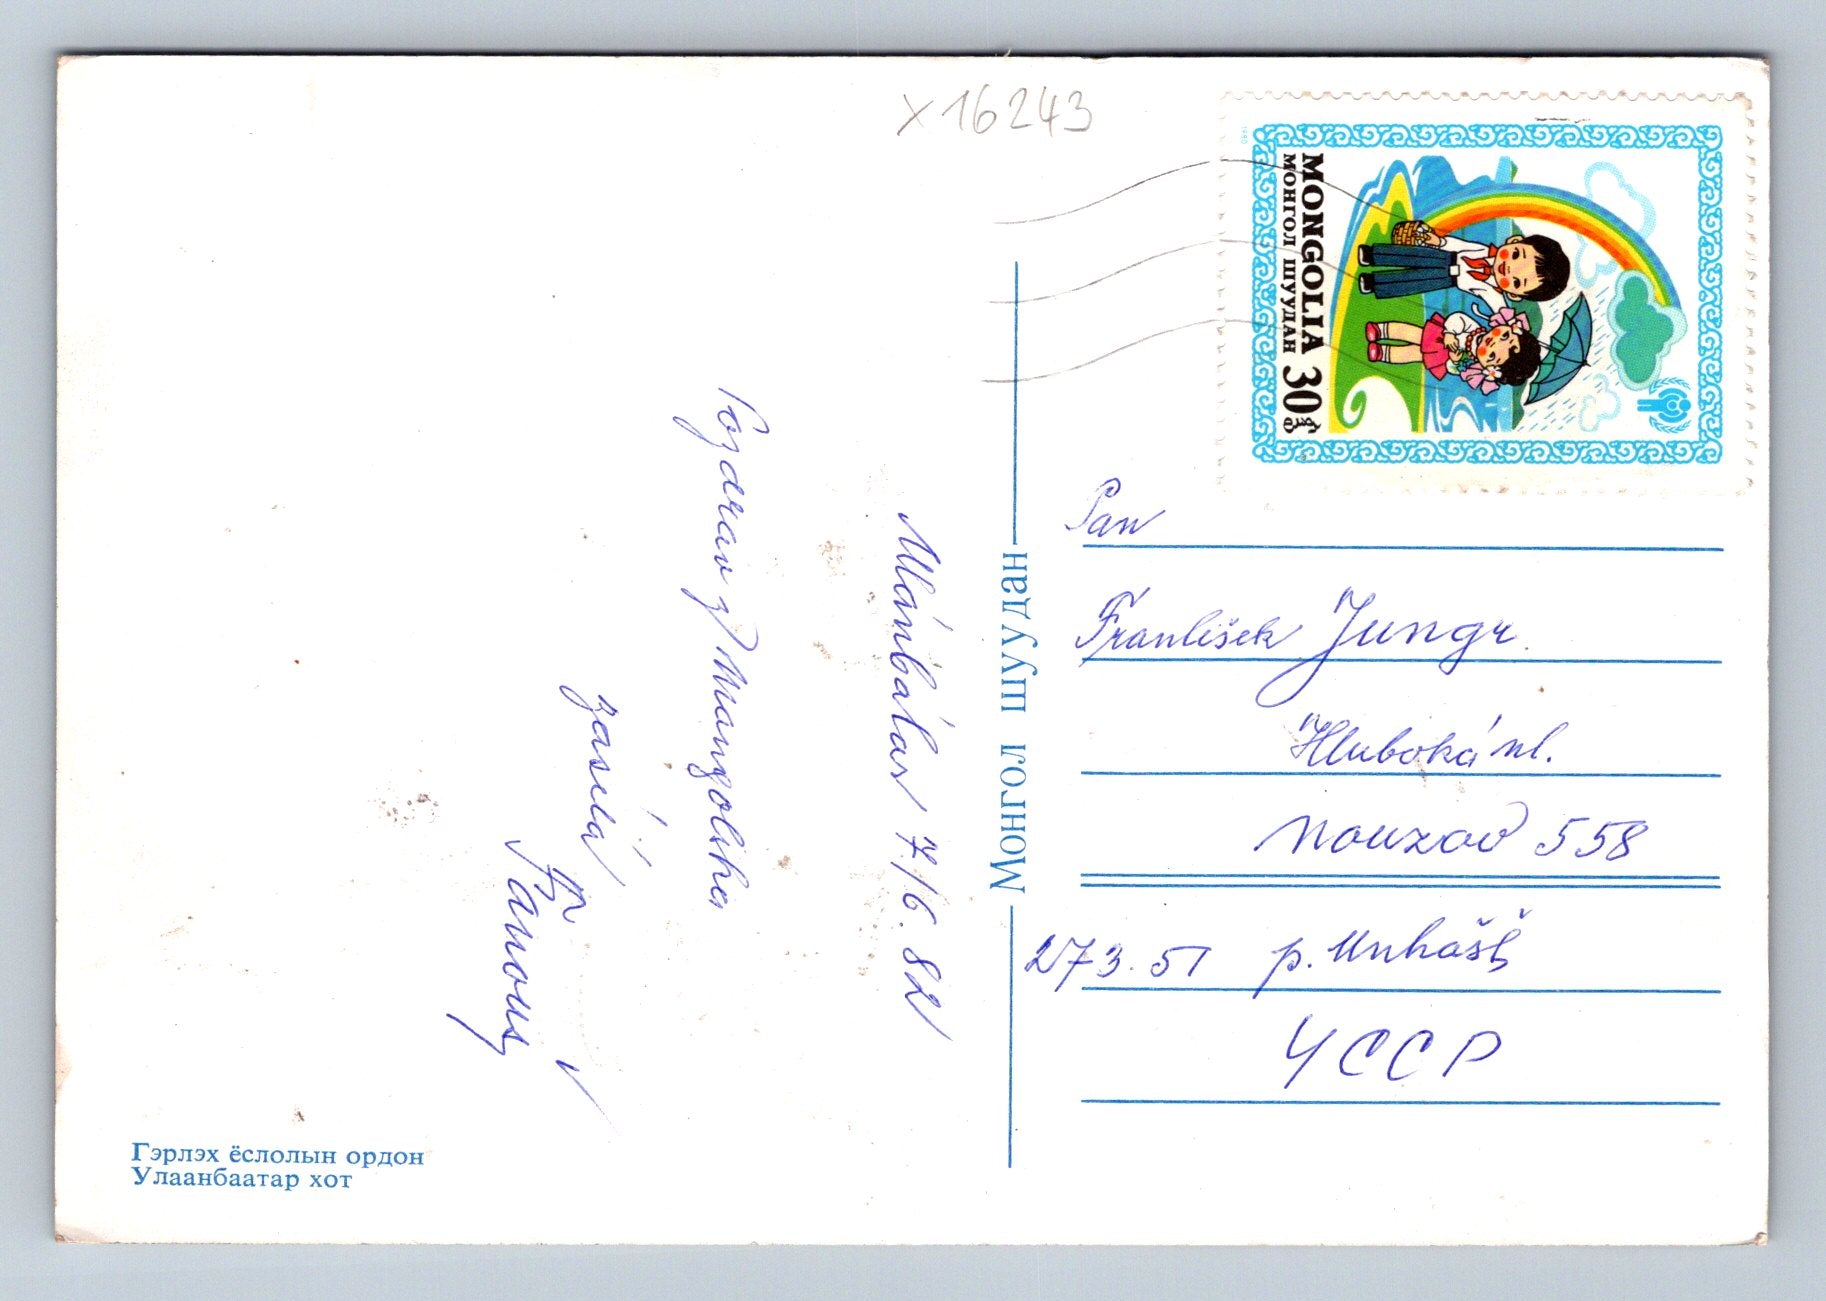 x16243
MONGOLIA 30
МОНГОЛ ШУУДАН
1980
Ulánbátar 7/6. 82
Pozdrav z Mangolska
zasílá
Монгол шуудан
Pan
František Jungr
Hluboká ul.
Nouzov 558
273.51 p. Unhošť
ЧССР
Гэрлэх ёслолын ордон
Улаанбаатар хот